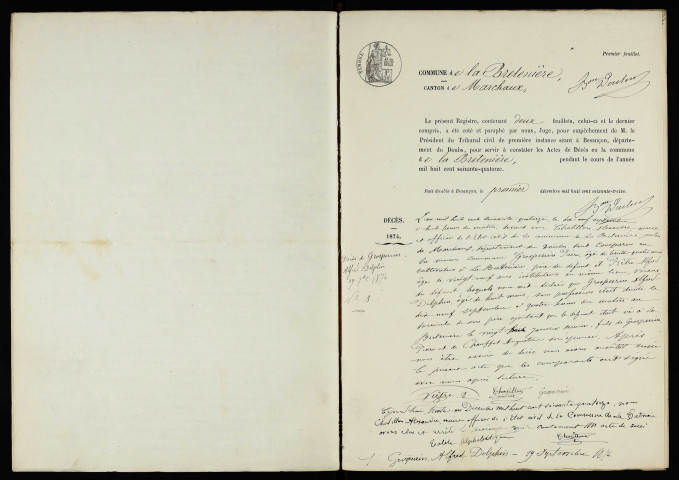 Premier feuillet.
COMMUNE de la Bretenière,
CANTON de Marchaux,
Le présent Registre, contenant deux feuillets, celui-ci et le dernier
compris, a été coté et paraphé par nous, Juge, pour empêchement de M. le
Président du Tribunal civil de première instance séant à Besançon, départe-
ment du Doubs, pour servir à constater les Actes de Décès en la commune
de la Bretenière, pendant le cours de l'année
mil huit cent soixante-quatorze.
Fait double à Besançon, le premier décembre mil huit cent soixante-treize.
DÉCÈS.
1874.
L'an mil huit cent soixante quatorze le dix neuf septembre
à huit heures du matin devant nous Chatillon Alexandre, maire
et officier de l'état civil de la commune de La Bretenière canton
de Marchaux, département du Doubs, sont comparus en
la maison commune Grosperrin
cultivateur à La Bretenière, père du défunt et
âgé de vingt neuf ans instituteur
du défunt lesquels nous ont déclaré que Grosperrin Alfred
Delphin, âgé de huit mois, sans profession était décédé le
dix neuf septembre à quatre heures du matin au
domicile de son père, ajoutant que le défunt était né à La
Bretenière le vingt janvier dernier, fils de Grosperrin
et de son épouse. Après
nous être assuré du décès nous avons dressé
le présent acte que les comparants ont signé
avec nous après lecture.
Grosperrin
Alfred Delphin
19 7bre 1874
Chatillon Grosperrin
trente un Décembre mil huit cent soixante quatorze, nous
Chatillon Alexandre, maire officier de l'état civil de la Commune de la Bretenière
avons clos et arrêté contenant un acte de décès
Table Alphabétique Chatillon
Grosperrin, Alfred Delphin — 19 Septembre 1874